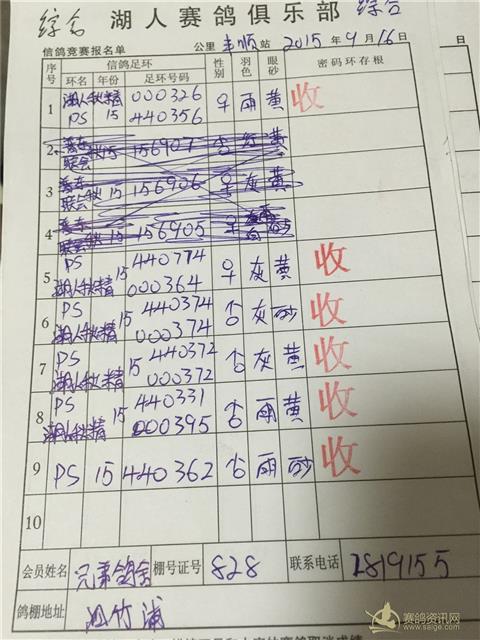 综合 湖人赛鸽俱乐部 综合
信鸽竞赛报名单 公里 丰顺 站 2015 年 9 月 16 日
序号 信鸽足环 性别 羽色 眼砂 密码环存根
环名 年份 足环号码
1 湖人秋精 000326 ♀ 雨 黄 收
PS 15 440356
2 联会 15 156907 黄
3 联会 15 156906 ♀ 灰 黄
4 15 156905 砂
5 PS 15 440774 ♀ 灰 黄 收
湖人秋精 000364
6 PS 15 440374 灰 砂 收
湖人秋精 000374
7 PS 15 440372 灰 黄 收
湖人秋精 000372
8 PS 15 440331 雨 黄 收
湖人秋精 000395
9 PS 15 440362 雨 砂 收
10
会员姓名 兄弟鸽舍 棚号证号 828 联系电话 2819155
鸽棚地址 竹浦
赛鸽资讯网
www.saige.com